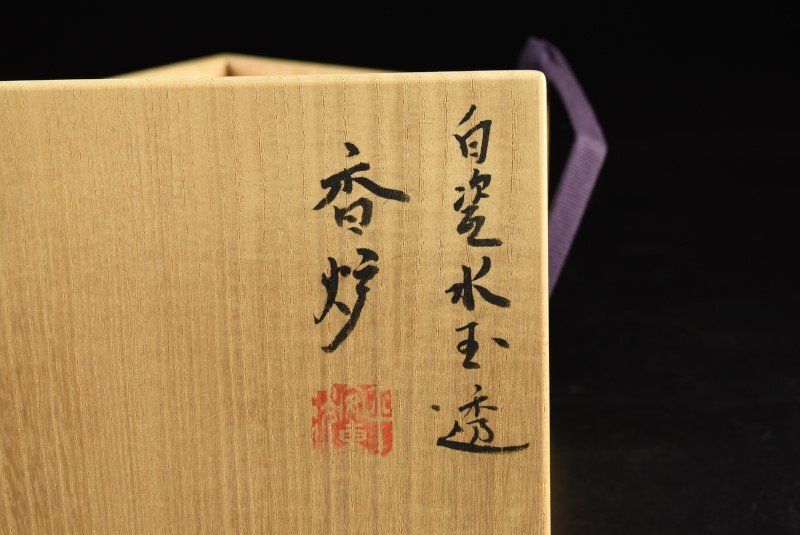 白瓷水玉透
香炉